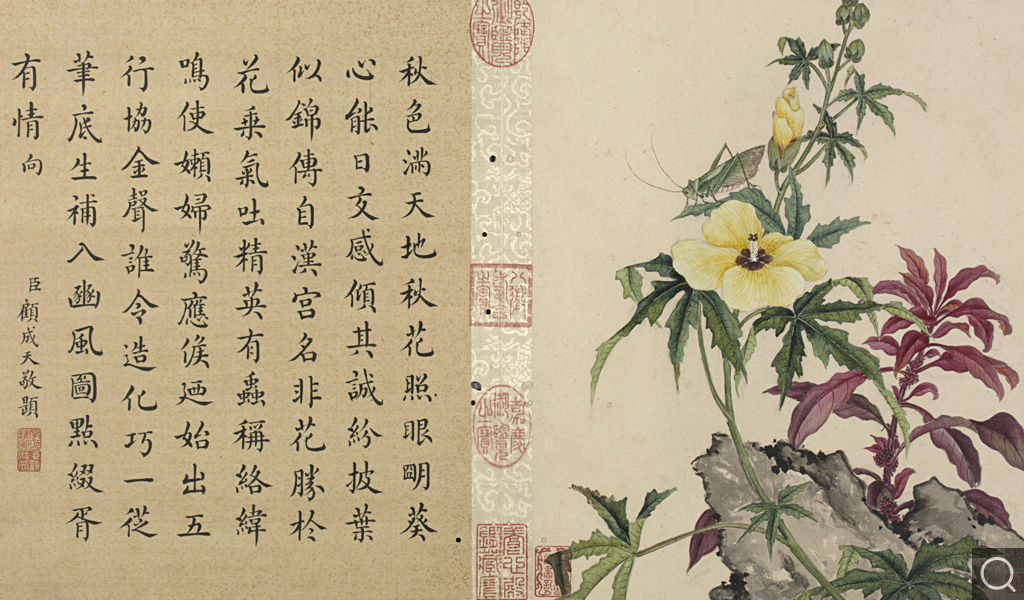 秋色滿天地秋花照眼明葵
心能日文感傾其誠紛披葉
似錦傳自漢宮名非花勝於
花乘氣吐精英有蟲稱絡緯
鳴使嬾婦驚應候迺始出五
行協金聲誰令造化巧一從
筆底生補入豳風圖點綴胥
有情向
臣顧成天敬題